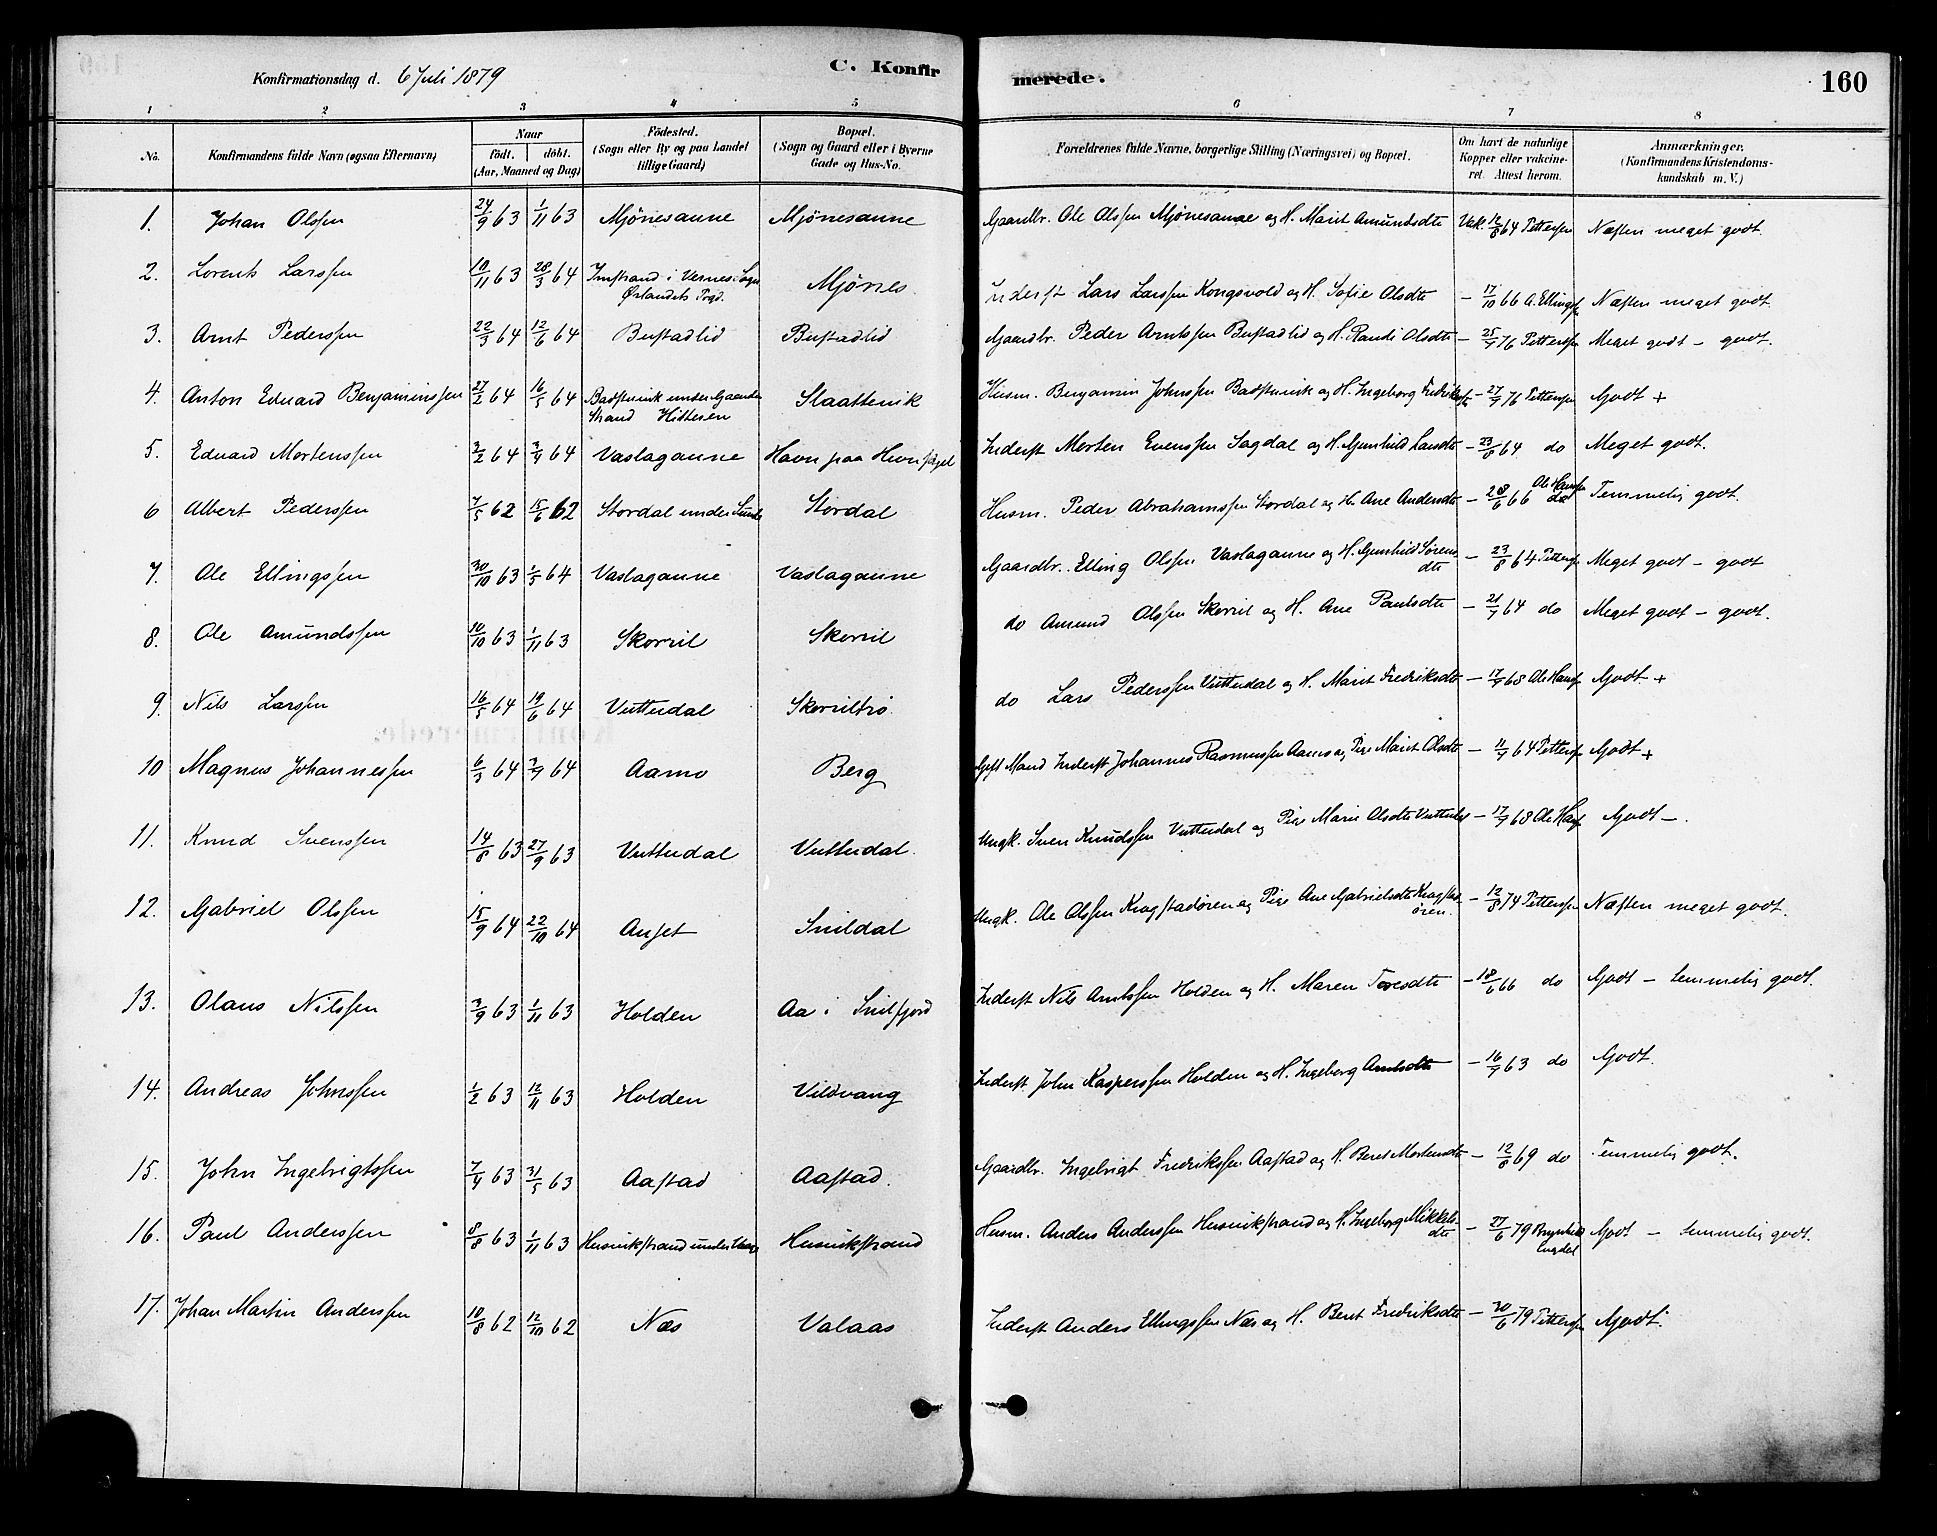 Konfirmationsdag d. 6 Juli 1879
C. Konfirmerede.
160
1 2 3 4 5 6 7 8
No. Konfirmandens fulde Navn (ogsaa Efternavn) Naar födt. döbt. (Aar, Maaned og Dag) Födested. (Sogn eller By og paa Landet tillige Gaard) Bopæl. (Sogn og Gaard eller i Byerne Gade og Hus-No. Forældrenes fulde Navne, borgerlige Stilling (Næringsvei) og Bopæl. Om havt de naturlige Kopper eller vakcineret. Attest herom. Anmærkninger. (Konfirmandens Kristendomskundskab m. V.)
1. Johan Olssen 24/9 63 1/11 63 Mjönesaune Mjönesaune Gaardbr. Ole Olssen Mjönesaunae og H. Marit Amundsdte Vak. 12/8 64 Pettersen Næsten meget godt.
2. Lorents Larssen 10/11 63 28/3 64 Imstrand i Vernes Sogn Ørlandets Prgd. Mjönes. Inderst Lars Larssen Kongsvold og H. Sofie Olsdte – 17/10 66 A. Ellingsen Næsten meget godt.
3. Arnt Pederssen 22/3 64 12/6 64 Bustadlid Bustadlid Gaardbr. Peder Arntssen Bustadlid og H. Randi Olsdte – 25/7 76 Petterssen Meget godt – godt.
4. Anton Eduard Benjaminssen 27/2 64 16/5 64 Badstuvik under Gaarden Strand Hitteren Slaattevik Husm. Benjamin Johnssen Badstuvik og H. Ingeborg Fredriksdte – 27/7 76 Petterssen Godt +
5. Eduard Mortenssen 2/2 64 3/4 64 Vaslagaune Havn paa Hevnskjel Inderst Morten Evenssen Sagdal og H. Gunhild Larsdte – 23/8 64 do Meget godt.
6 Albert Pederssen 7/5 62 15/6 62 Stordal under Sunde Stordal Husm. Peder Abrahamssen Stordal og H. Ane Andersdte – 28/6 66 Ole Hansen Temmelig godt.
7. Ole Ellingssen 30/10 63 1/5 64 Vaslagaune Vaslagaune Gaardbr. Elling Olssen Vaslagaune og H. Gunhild Sörensdte – 23/8 64 Petterss Meget godt – godt
8. Ole Amundssen 10/10 63 1/11 63 Skorsil Skorsil do Amund Olssen Skorsil og H. Ane Paulsdte – 21/7 64 do Meget godt – godt.
9. Nils Larssen 16/5 64 19/6 64 Vuttudal Skorsiltrö do Lars Pederssen Vuttudal og H. Marit Fredriksdte – 17/9 68 Ole Hanss Godt. +
10 Magnus Johannessen 6/5 64 3/7 64 Aamo Berg Gift Mand Inderst Johannes Rasmussen Aamo og Pige Marit Olsdte – 11/9 64 Petterss Godt +
11. Knud Svenssen 14/8 63 27/9 63 Vuttudal Vuttudal. Ungk. Sven Knudssen Vuttudal og Pige Marie Olsdte Vuttudal – 17/9 68 Ole Hanss Godt –.
12. Gabriel Olssen 15/9 64 22/10 64 Auset Snildal Ungk. Ole Olssen Krogstadören og Pige Ane Gabrielsdte Krogstadören. – 12/8 74 Petterssen Næsten meget godt.
13. Olaus Nilssen 3/9 63 1/11 63 Holden Aa i Snilfjord Inderst Nils Arntssen Holden og H. Maren Toresdte – 18/6 66 do Godt – temmelig godt.
14. Andreas Johnssen 1/2 63 12/11 63 Holden Vildvang Inderst John Kasperssen Holden og H. Ingeborg Arntsdte – 16/9 63 do Godt.
15. John Ingebrigtssen 7/4 63 31/5 63 Aastad Aastad. Gaardbr. Ingebrigt Fredrikssen Aastad og H. Beret Mortensdte – 12/8 69 do Temmelig godt.
16. Paul Anderssen 8/8 63 1/11 63 Husvikstrand under Husvikstrand Husm. Anders Anderssen Husvikstrand og H. Ingeborg Mikkelsdte – 27/6 79 Engdal Godt – temmelig godt.
17. Johan Martin Anderssen 10/8 62 12/10 62 Næs Valaas Inderst Anders Ellingssen Næs og H. Beret Fredriksdte – 30/6 79 Petterss Godt.